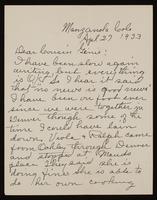 Manzanola Colo
Sept 27 1933
Dear Cousin Gene:
I have been slow again
writing, but everything
is O.K. so I hear it said
that no news is good news
I have been on first over
since we were together in
Denver though some of the
time I could have lain
down. Viola & Ralph came
from Oakley through Denver
and stopped at Maude
place. They said she is
doing fine. She is able to
do her own cooking